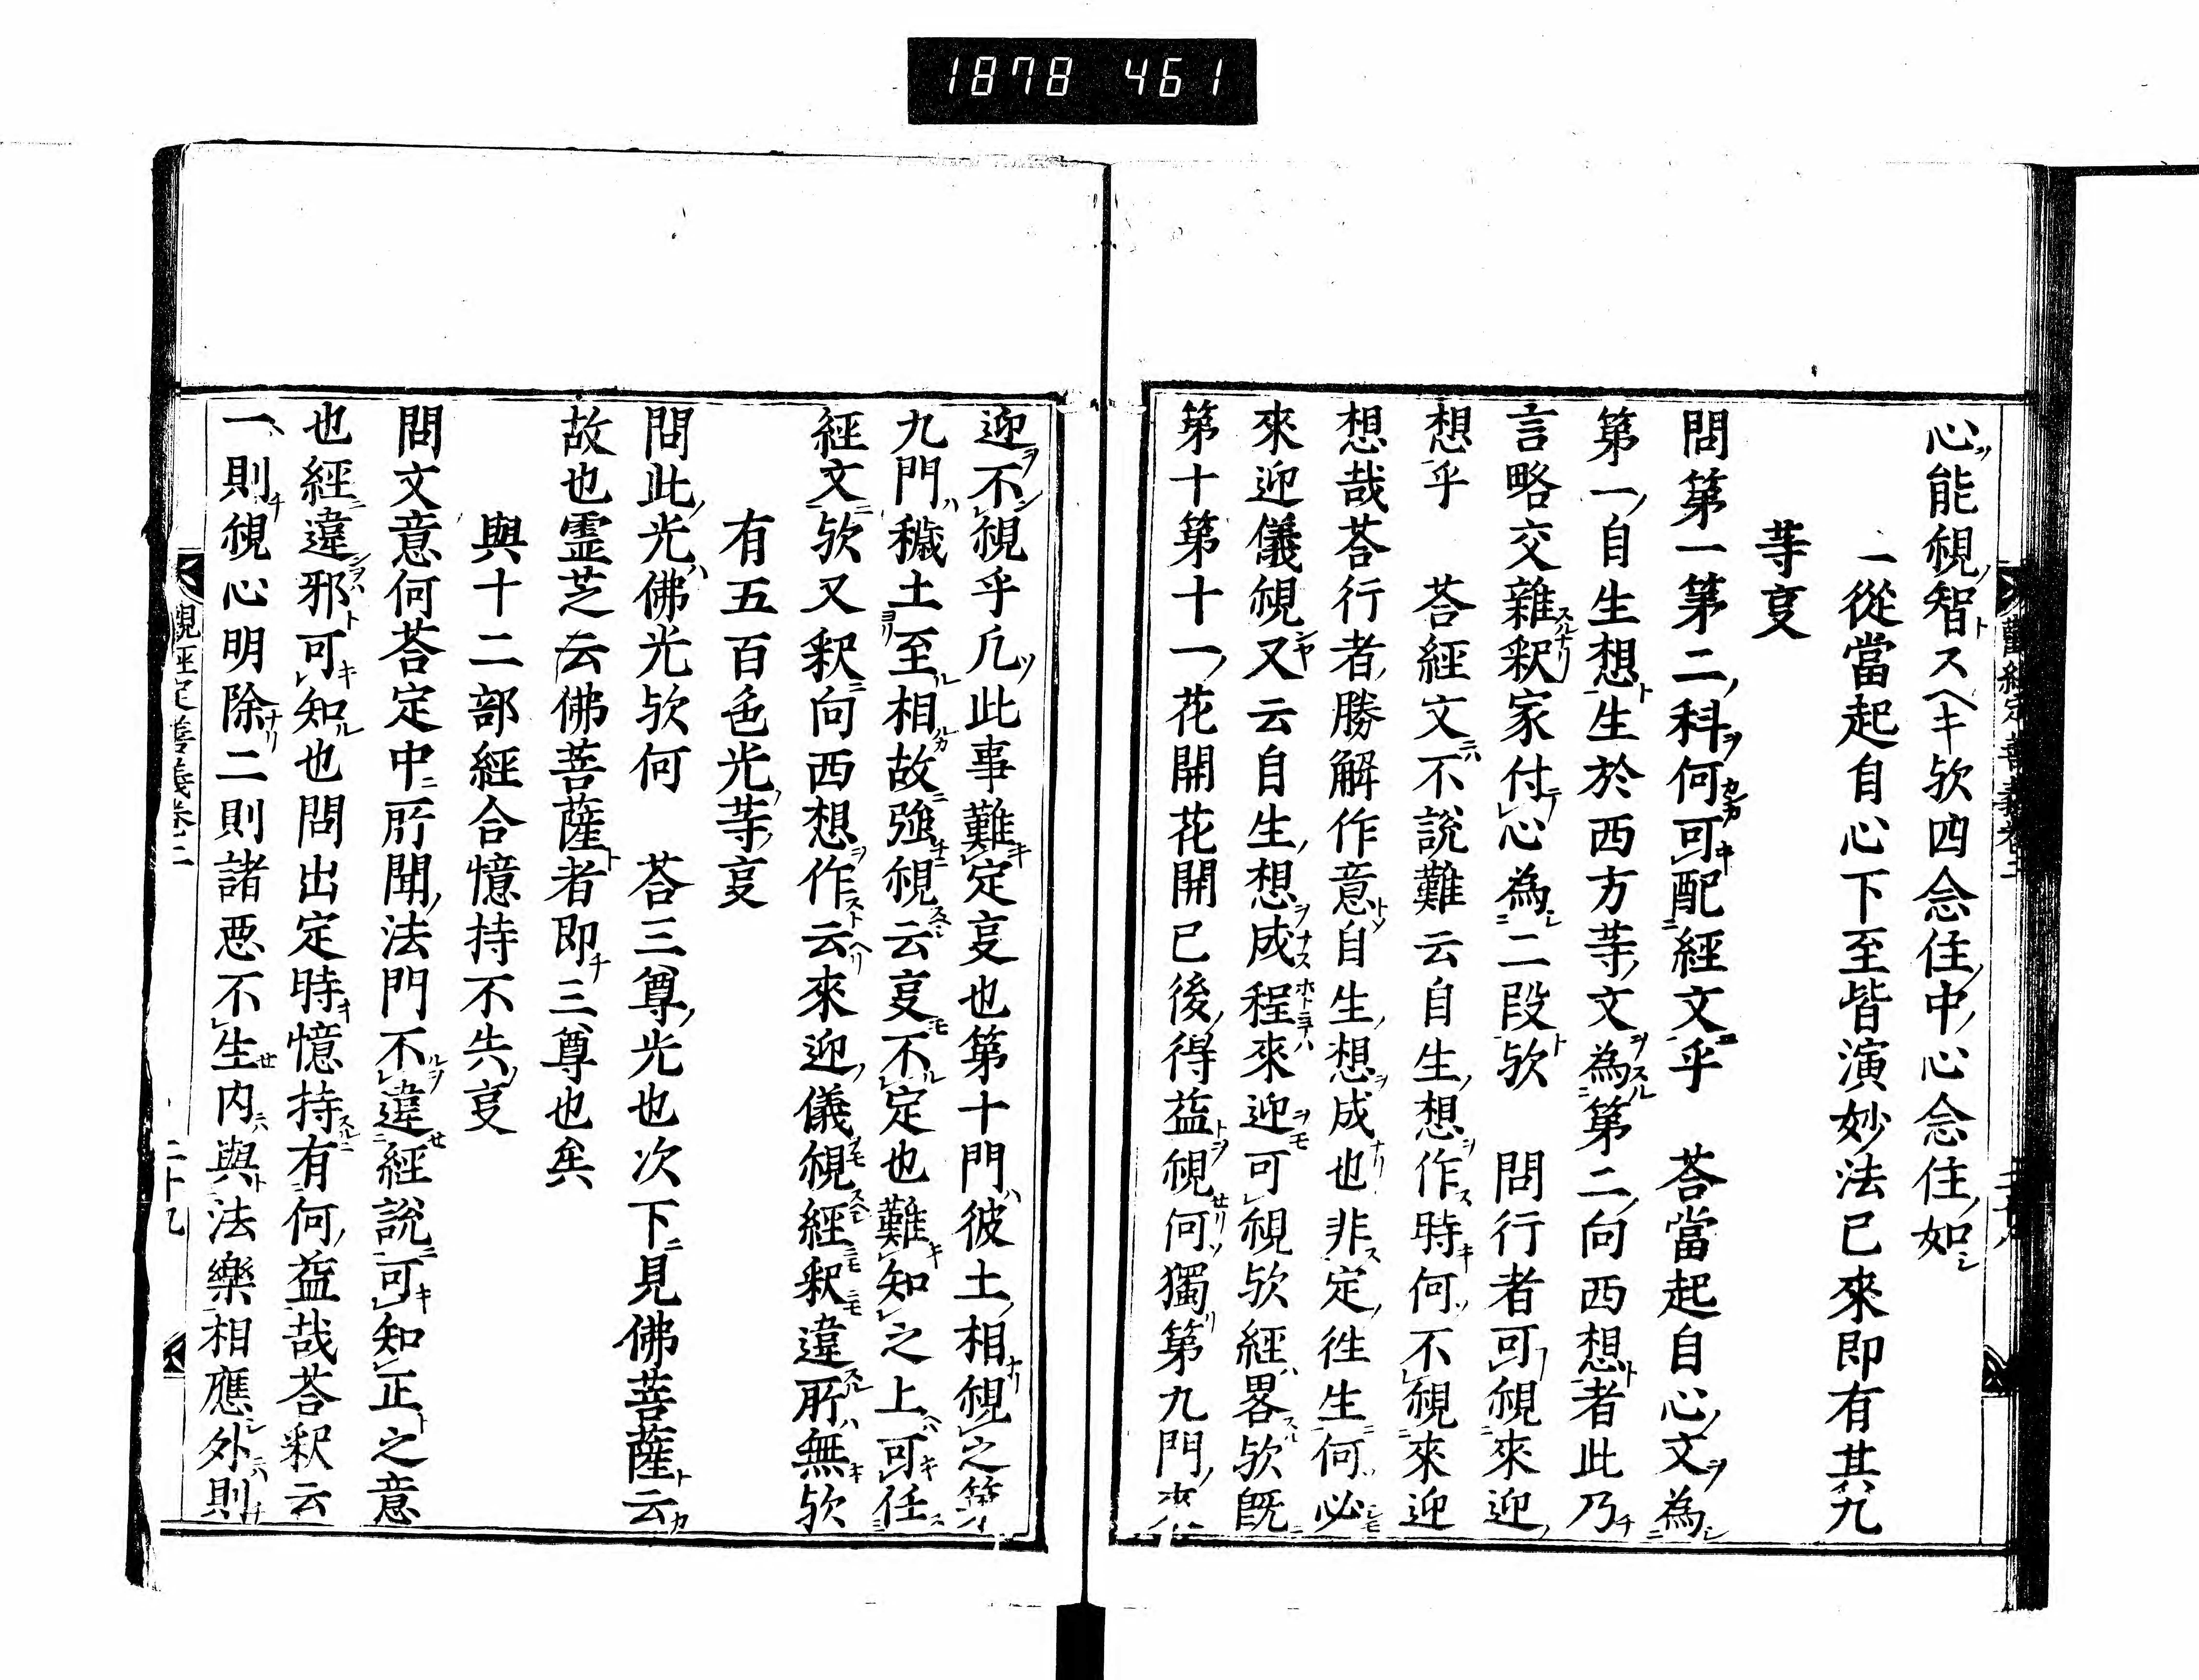 1878 461
心能覩智トスヘキ欤四念住中心念住如
一從當起自心下至皆演妙法已來即有其九
䓁㕝
問第一第二科何可配經文乎　荅當起自心文為
第一自生想生於西方䓁文為第二向西想者此乃
言略交雜釈家付心為二段欤　問行者可覩來迎
想乎　荅經文不說難云自生想作時何不覩來迎
想哉荅行者勝解作意自生想成也非定徃生何必
來迎儀覩又云自生想成程來迎可覩欤經畧欤既
第十第十一花開花開已後得益覩何獨第九門來
迎不覩乎凢此事難定㕝也第十門彼土相覩之第
九門穢土至相故強覩云㕝不定也難知之上可任
經文欤又釈向西想作云來迎儀覩經釈違所無欤
有五百色光䓁㕝
問此光佛光欤何　荅三尊光也次下見佛菩薩云
故也霊芝云佛菩薩者即三尊也矣
與十二部經合憶持不失㕝
問文意何荅定中所聞法門不違經說可知正之意
也經違邪可知也問出定時憶持有何益哉荅釈云
一則覩心明除二則諸悪不生内與法樂相應外則
觀經定善義卷二
二十九